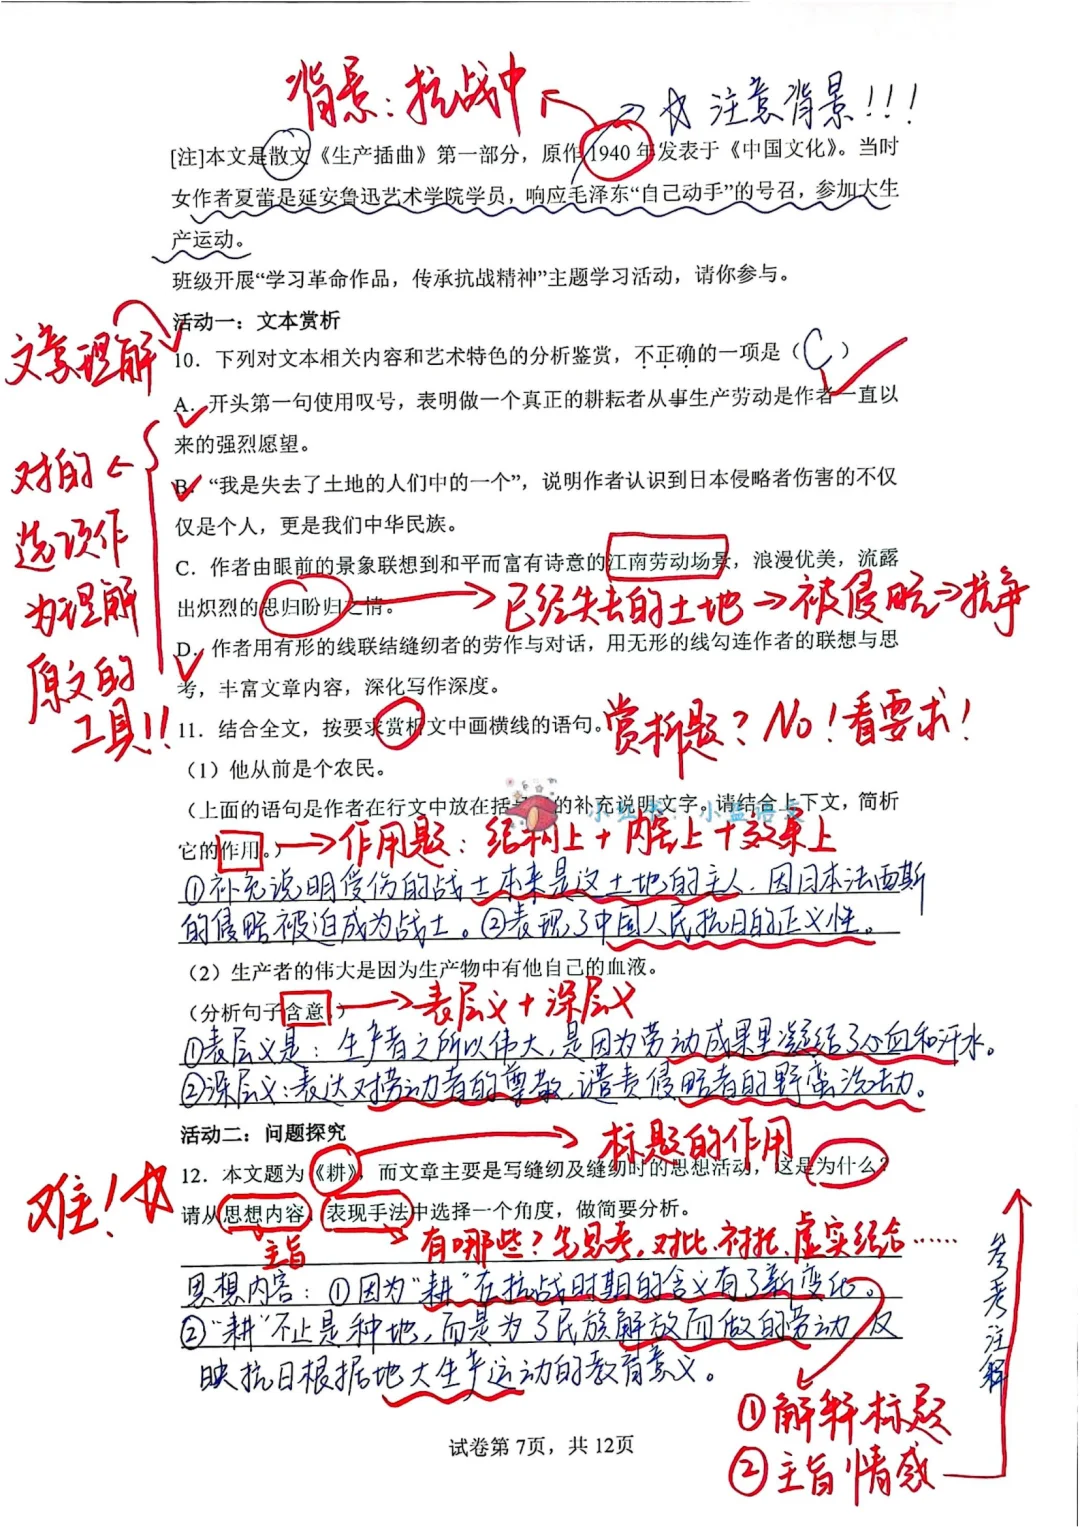 背景：抗战中
→ 必 注意背景！！！
[注]本文是散文《生产插曲》第一部分，原作 1940 年发表于《中国文化》。当时
女作者夏蕾是延安鲁迅艺术学院学员，响应毛泽东“自己动手”的号召，参加大生
产运动。
班级开展“学习革命作品，传承抗战精神”主题学习活动，请你参与。
活动一：文本赏析
文意理解
10．下列对文本相关内容和艺术特色的分析鉴赏，不正确的一项是（ C ）
A．开头第一句使用叹号，表明做一个真正的耕耘者从事生产劳动是作者一直以
来的强烈愿望。
对的选项作为理解原文的工具！！
B．“我是失去了土地的人们中的一个”，说明作者认识到日本侵略者伤害的不仅
仅是个人，更是我们中华民族。
C．作者由眼前的景象联想到和平而富有诗意的江南劳动场景，浪漫优美，流露
出炽烈的思归盼归之情。
→ 已经失去的土地→被侵略→抗争
D．作者用有形的线联结缝纫者的劳作与对话，用无形的线勾连作者的联想与思
考，丰富文章内容，深化写作深度。
11．结合全文，按要求赏析文中画横线的语句。
赏析题？No！看要求！
（1）他从前是个农民。
（上面的语句是作者在行文中放在括号里的补充说明文字。请结合上下文，简析
它的作用。）
→作用题：结构上＋内容上＋效果上
小红书：小盖语文
①补充说明受伤的战士本来是这土地的主人，因日本法西斯
的侵略被迫成为战士。②表现了中国人民抗日的正义性。
（2）生产者的伟大是因为生产物中有他自己的血液。
（分析句子含意。）
→表层义＋深层义
①表层义是：生产者之所以伟大，是因为劳动成果里凝结了心血和汗水。
②深层义：表达对劳动者的尊敬，谴责侵略者的野蛮统治。
活动二：问题探究
标题的作用
12．本文题为《耕》，而文章主要是写缝纫及缝纫时的思想活动，这是为什么？
难！
请从思想内容、表现手法中选择一个角度，做简要分析。
主旨
有哪些？先思考，对比、衬托、虚实结合……
思想内容：①因为“耕”在抗战时期的含义有了新变化。
②“耕”不止是种地，而是为了民族解放而做的劳动，反
映抗日根据地大生产运动的教育意义。
参考注解
①解释标题
②主旨情感
试卷第 7页，共 12页